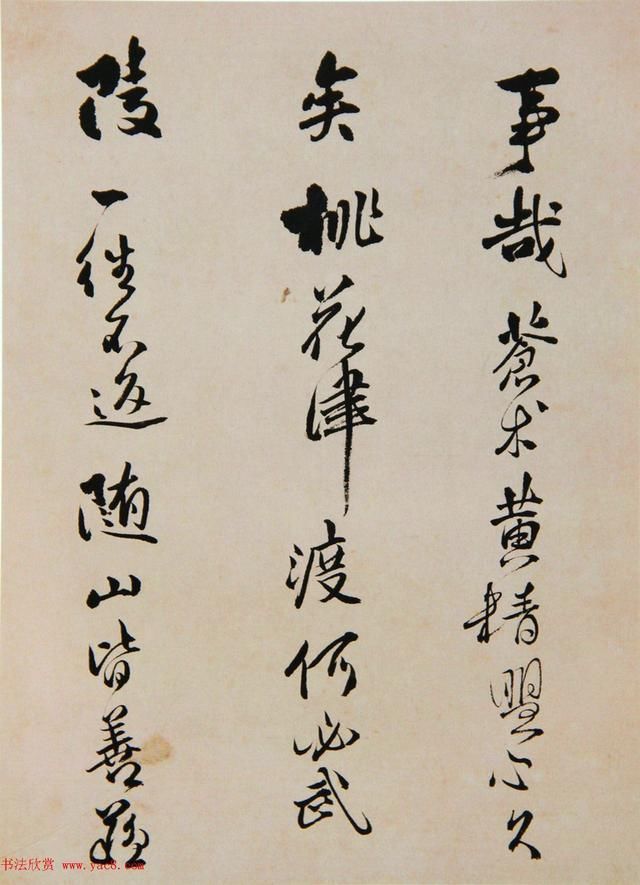 事哉蒼术黄精盟心久
矣桃花津渡何必武
陵一往不返随山皆善
书法欣赏 www.yac8.com